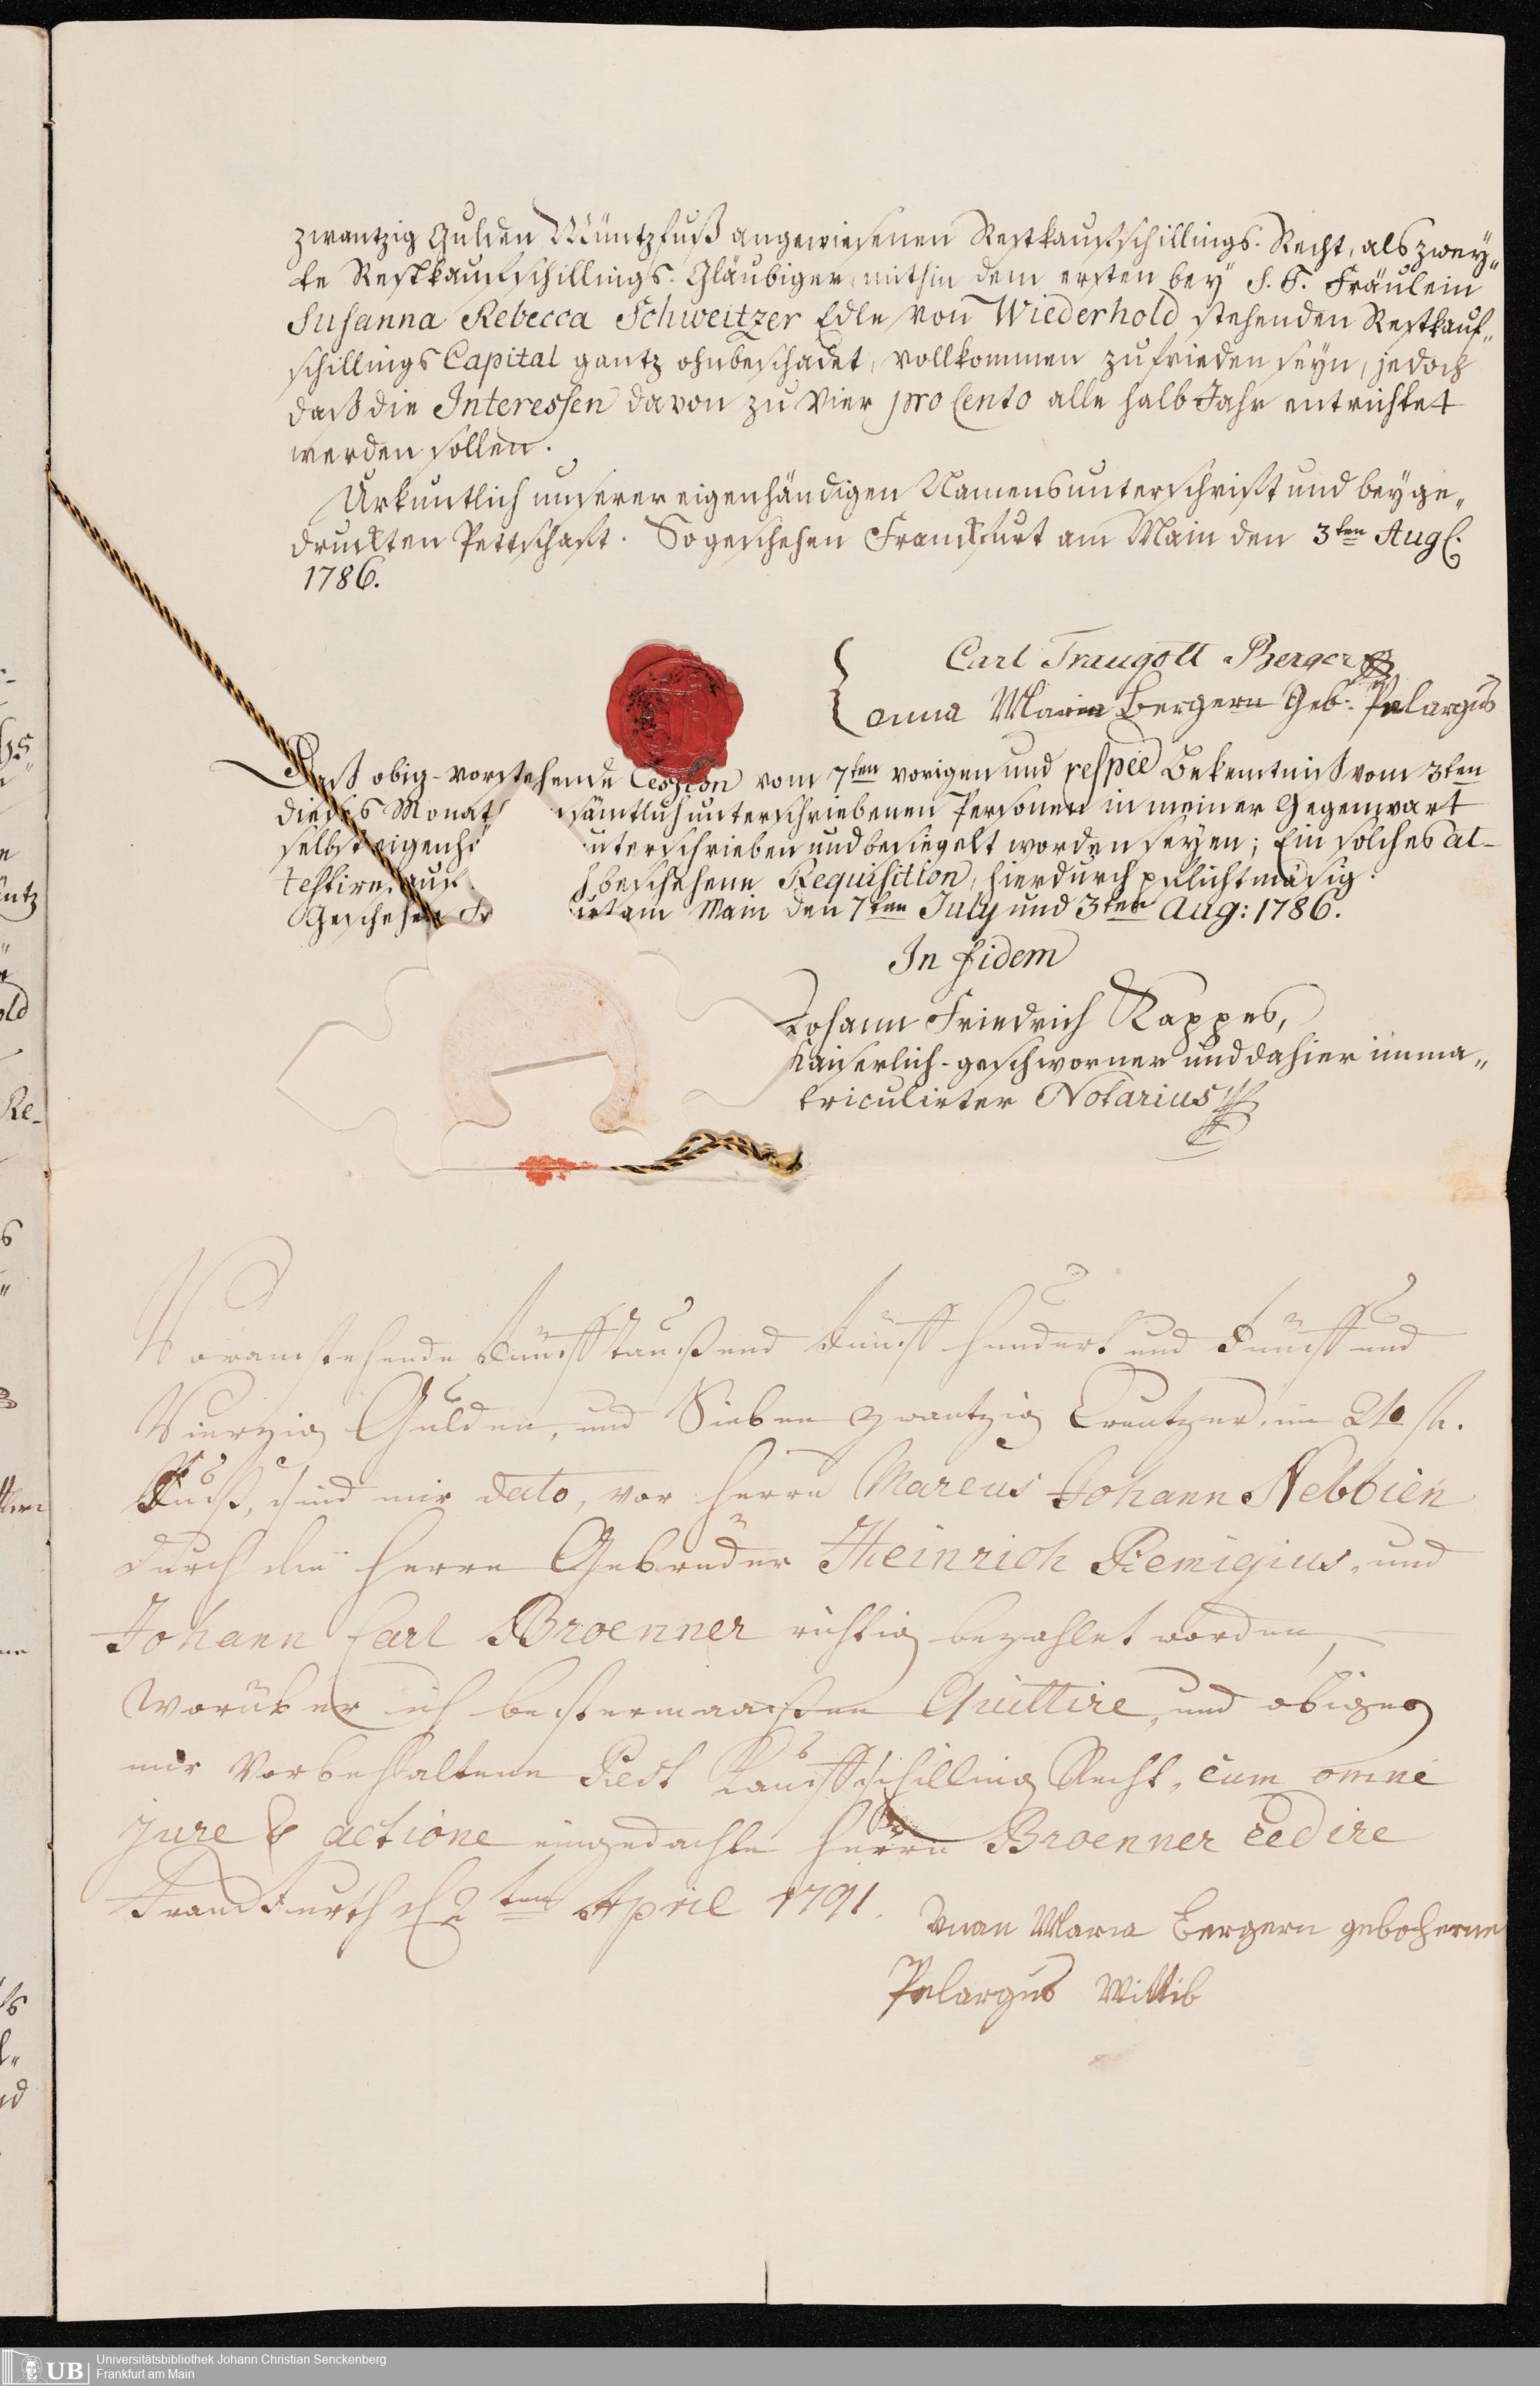 zwantzig Gulden Müntzfuß angewiesenen Restkaufschillings-Recht, als zwey„
te Restkaufschillings-Gläubiger, mithin dem ersten bey S. T. Fräulein
Susanna Rebecca Schweitzer Edle von Wiederhold stehenden Restkauf„
schillings Capital gantz ohnbeschadet, vollkommen zufrieden seyn, jedoch
daß die Interessen davon zu vier pro Cento alle halb Jahr entrichtet
werden sollen.
Urkuntlich unserer eigenhändigen Namensunterschrift und beyge„
druckten Pettschaft. So geschehen Franckfurt am Main den 3ten Aug.
1786.
Carl Traugott Berger
Anna Maria Bergern Geb: Pelargus
Daß obig-vorstehende Cession vom 7ten vorigen und respee Bekentniß vom 3ten
dieses Monats sämtlich unterschriebenen Personen in meiner Gegenwart
selbst eigenhä unterschrieben und besiegelt worden seyen; Ein solches at-
testire auf beschehene Requisition, hierdurch pflichtmäsig.
Geschehen Fr urt am Main den 7ten July und 3ten Aug: 1786.
In fidem
Johann Friedrich Kappes,
Kaiserlich-geschworner und dahier imma„
triculirter Notarius
Voranstehende Fünfftaußend Fünff hundert und Fünff und
Vierzig Gulden, und Sieben zwantzig Creutzer, im 24 fl.
Fuß, sind mir dato, vor Herrn Marcus Johann Nebbien
durch die Herrn Gebrüder Heinrich Remigius, und
Johann Carl Broenner richtig bezahlet worden,
worüber ich bestermaaßen Quittire, und obiges
mir vorbehaltene Rest Kauffschilling Recht, cum omne
jure & actione eingedachte Herrn Broenner Cedire
Franckfurth d 2ten April 1791.
Anna Maria Bergern geboherne
Pelargus Wittib
UB
Universitätsbibliothek Johann Christian Senckenberg
Frankfurt am Main